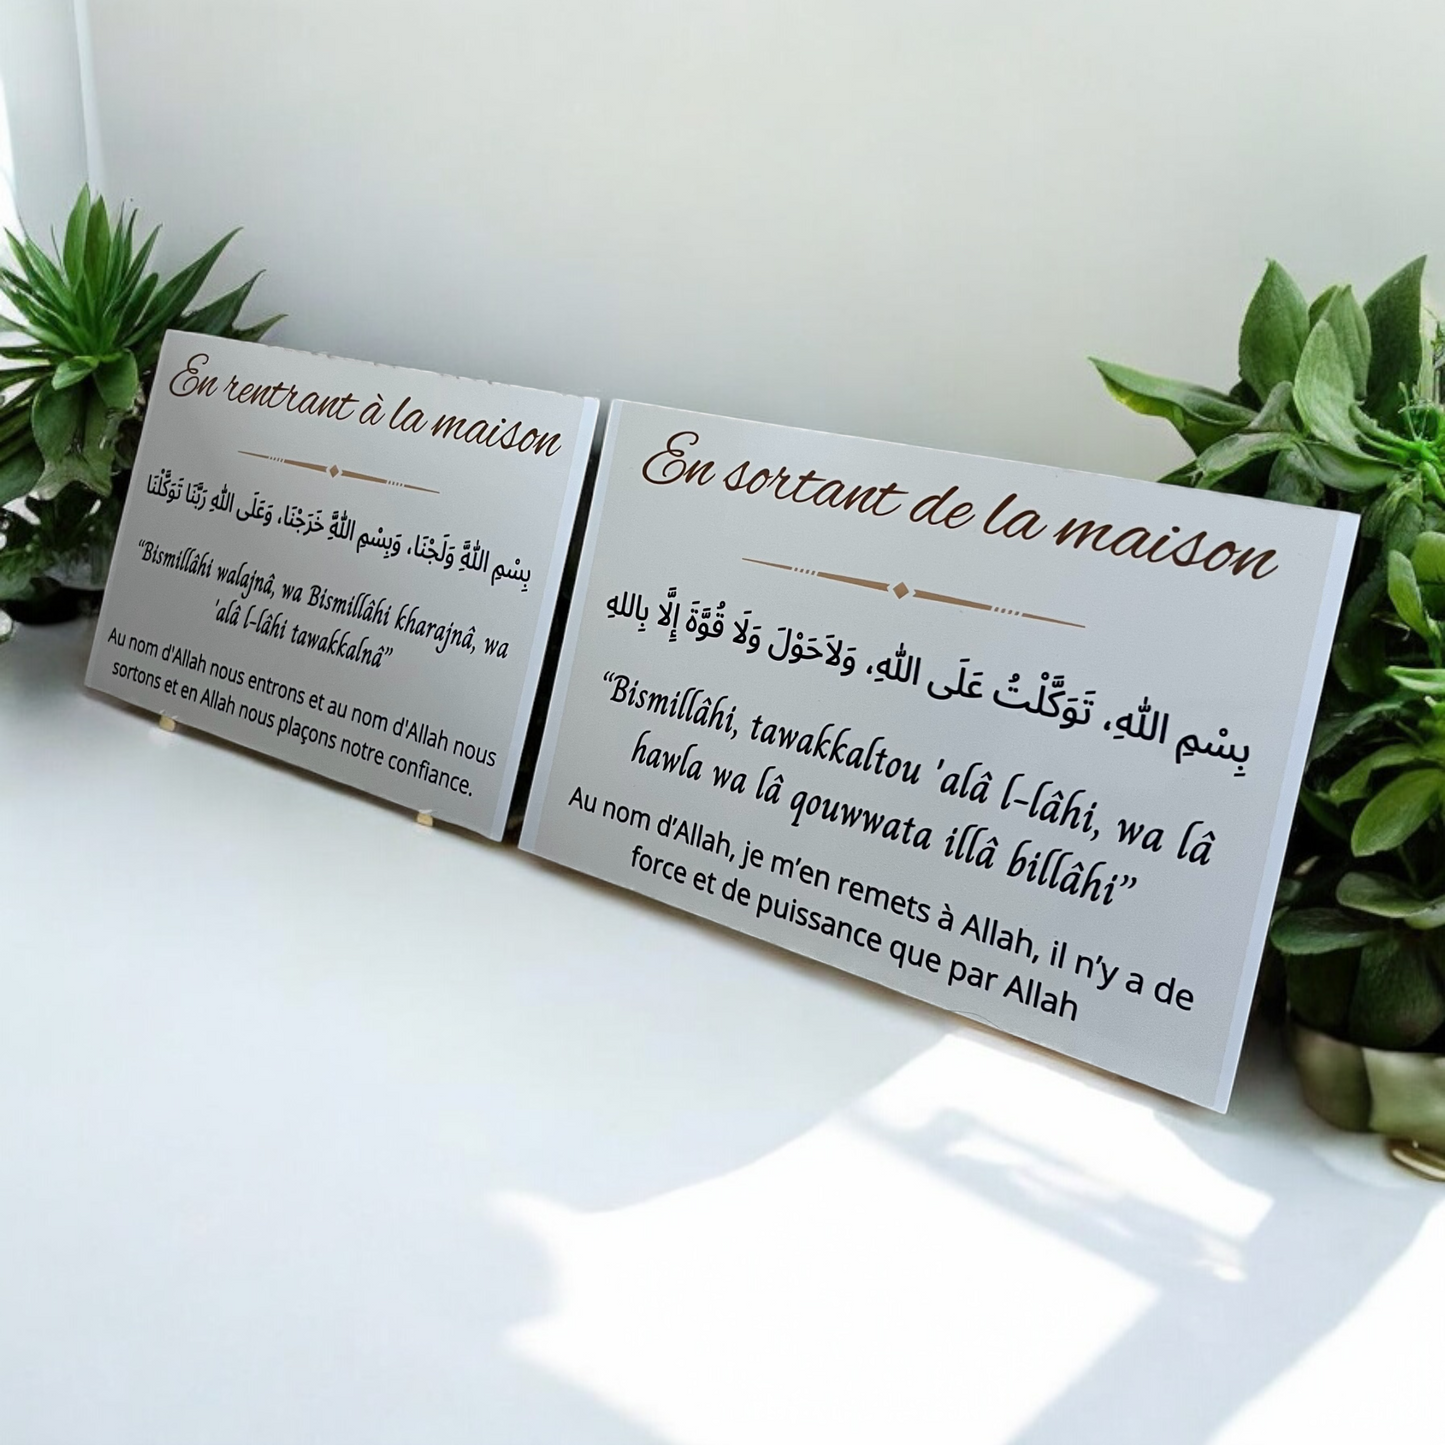 En rentrant à la maison
بِسْمِ اللَّهِ وَلَجْنَا، وَبِسْمِ اللَّهِ خَرَجْنَا، وَعَلَى اللهِ رَبَّنَا تَوَكَّلْنَا
“Bismillâhi walajnâ, wa Bismillâhi kharajnâ, wa
'alâ l-lâhi tawakkalnâ”
Au nom d'Allah nous entrons et au nom d'Allah nous
sortons et en Allah nous plaçons notre confiance.
En sortant de la maison
بِسْمِ اللهِ، تَوَكَّلْتُ عَلَى اللهِ، وَلاَحَوْلَ وَلَا قُوَّةَ إِلَّا بِاللهِ
“Bismillâhi, tawakkaltou 'alâ l-lâhi, wa lâ
hawla wa lâ qouwwata illâ billâhi”
Au nom d’Allah, je m’en remets à Allah, il n’y a de
force et de puissance que par Allah